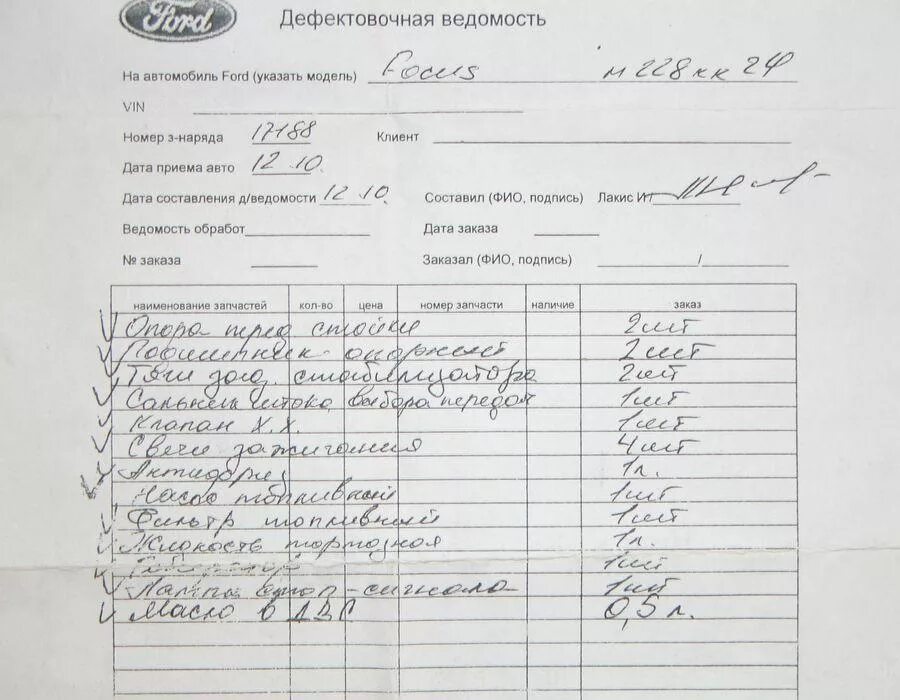 Ford
Дефектовочная ведомость
На автомобиль Ford (указать модель) Focus м228кк 24
VIN
Номер з-наряда 17188 Клиент
Дата приема авто 12.10.
Дата составления д/ведомости 12.10. Составил (ФИО, подпись) Лакис ИГ
Ведомость обработ Дата заказа
№ заказа Заказал (ФИО, подпись) /
наименование запчастей кол-во цена номер запчасти наличие заказ
Опора перед стойки 2шт
Подшипник опорный 2шт
Тяги зад. стабилизатора 2шт
Сальник штока выбора передач 1шт
Клапан Х.Х. 1шт
Свечи зажигания 4шт
1л.
Насос топливный 1шт
Фильтр топливный 1шт
Жидкость тормозная 1л.
1шт
Лампа стоп-сигнала 1шт
Масло в ДВС 0,5л.